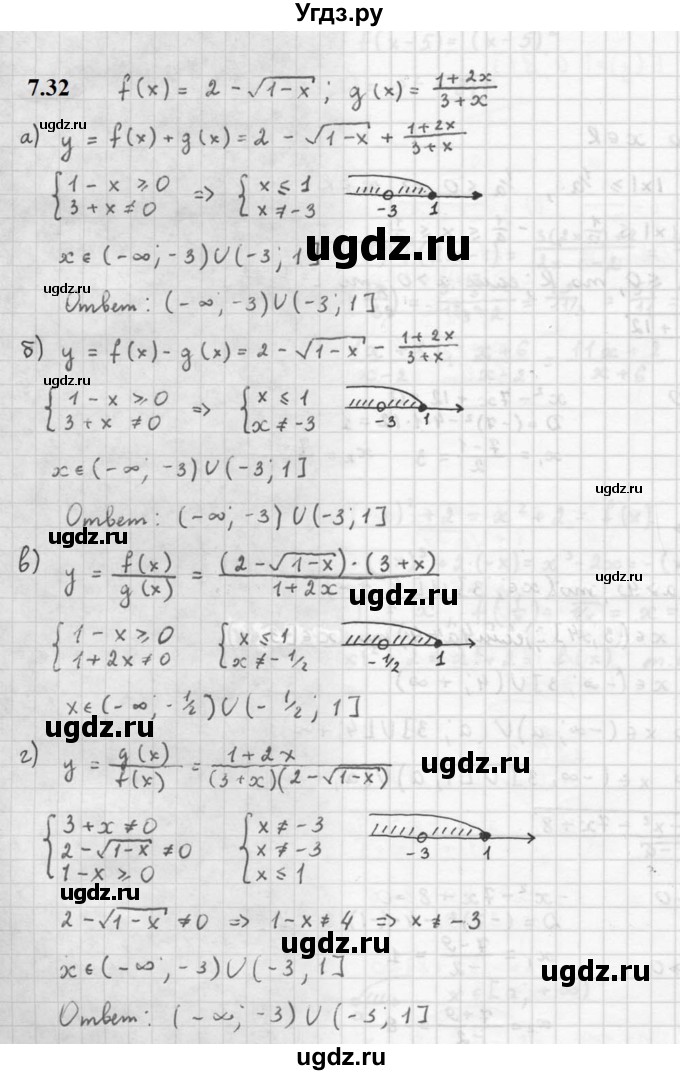 Угдз.ру
7.32 f(x) = 2 - √(1-x) ; g(x) = (1+2x)/(3+x)
ugdz.ru
а) y = f(x) + g(x) = 2 - √(1-x) + (1+2x)/(3+x)
{ 1 - x ≥ 0 => { x ≤ 1
3 + x ≠ 0 x ≠ -3 -3 1
ugdz.ru
ugdz.ru
x ∈ (-∞; -3) ∪ (-3; 1]
ugdz.ru
Ответ: (-∞; -3) ∪ (-3; 1]
б) y = f(x) - g(x) = 2 - √(1-x) - (1+2x)/(3+x)
ugdz.ru
{ 1 - x ≥ 0 => { x ≤ 1
3 + x ≠ 0 x ≠ -3 -3 1
x ∈ (-∞; -3) ∪ (-3; 1]
ugdz.ru
Ответ: (-∞; -3) ∪ (-3; 1]
ugdz.ru
в) y = f(x)/g(x) = (2 - √(1-x)) · (3+x)/(1+2x)
ugdz.ru
ugdz.ru
{ 1 - x ≥ 0 { x ≤ 1
1 + 2x ≠ 0 x ≠ -1/2 -1/2 1
ugdz.ru
x ∈ (-∞; -1/2) ∪ (-1/2; 1]
ugdz.ru
ugdz.ru
г) y = g(x)/f(x) = (1+2x)/((3+x)(2-√(1-x)))
ugdz.ru
{ 3 + x ≠ 0 { x ≠ -3
2 - √(1-x) ≠ 0 x ≠ -3 -3 1
1 - x ≥ 0 x ≤ 1
ugdz.ru
2 - √(1-x) ≠ 0 => 1 - x ≠ 4 => x ≠ -3
ugdz.ru
x ∈ (-∞; -3) ∪ (-3; 1]
ugdz.ru
ugdz.ru
Ответ: (-∞; -3) ∪ (-3; 1]
ugdz.ru